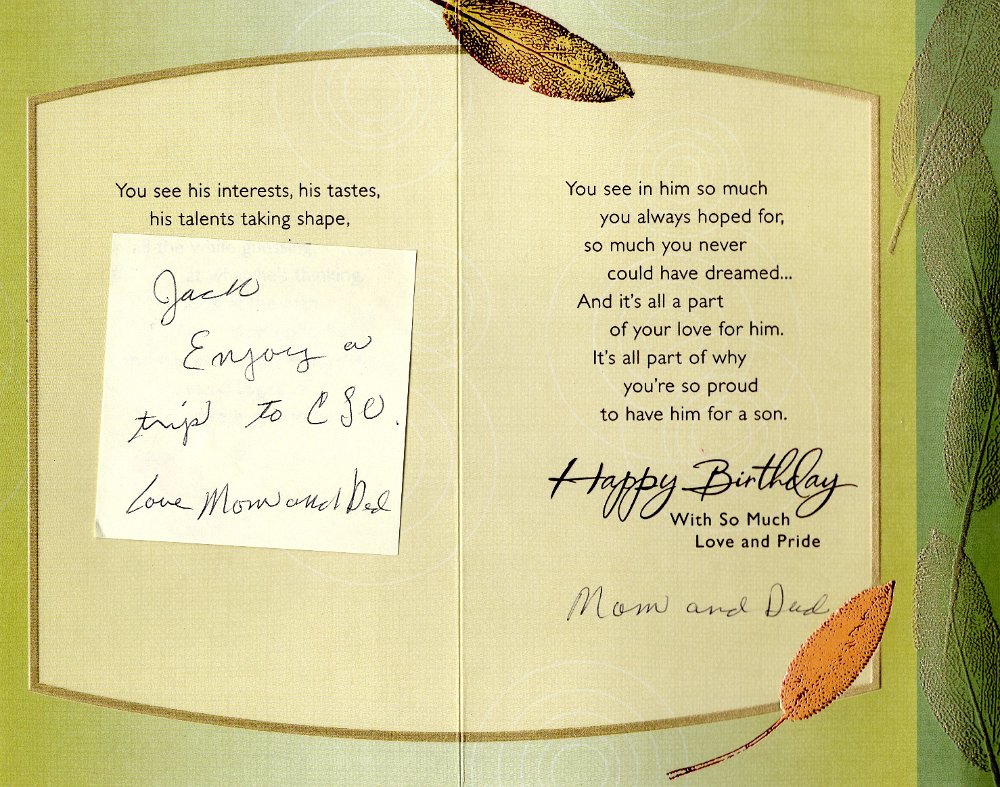 You see his interests, his tastes,
his talents taking shape,
Jack
Enjoy a
trip to CSO.
Love Mom and Dad
You see in him so much
you always hoped for,
so much you never
could have dreamed...
And it's all a part
of your love for him.
It's all part of why
you're so proud
to have him for a son.
Happy Birthday
With So Much
Love and Pride
Mom and Dad